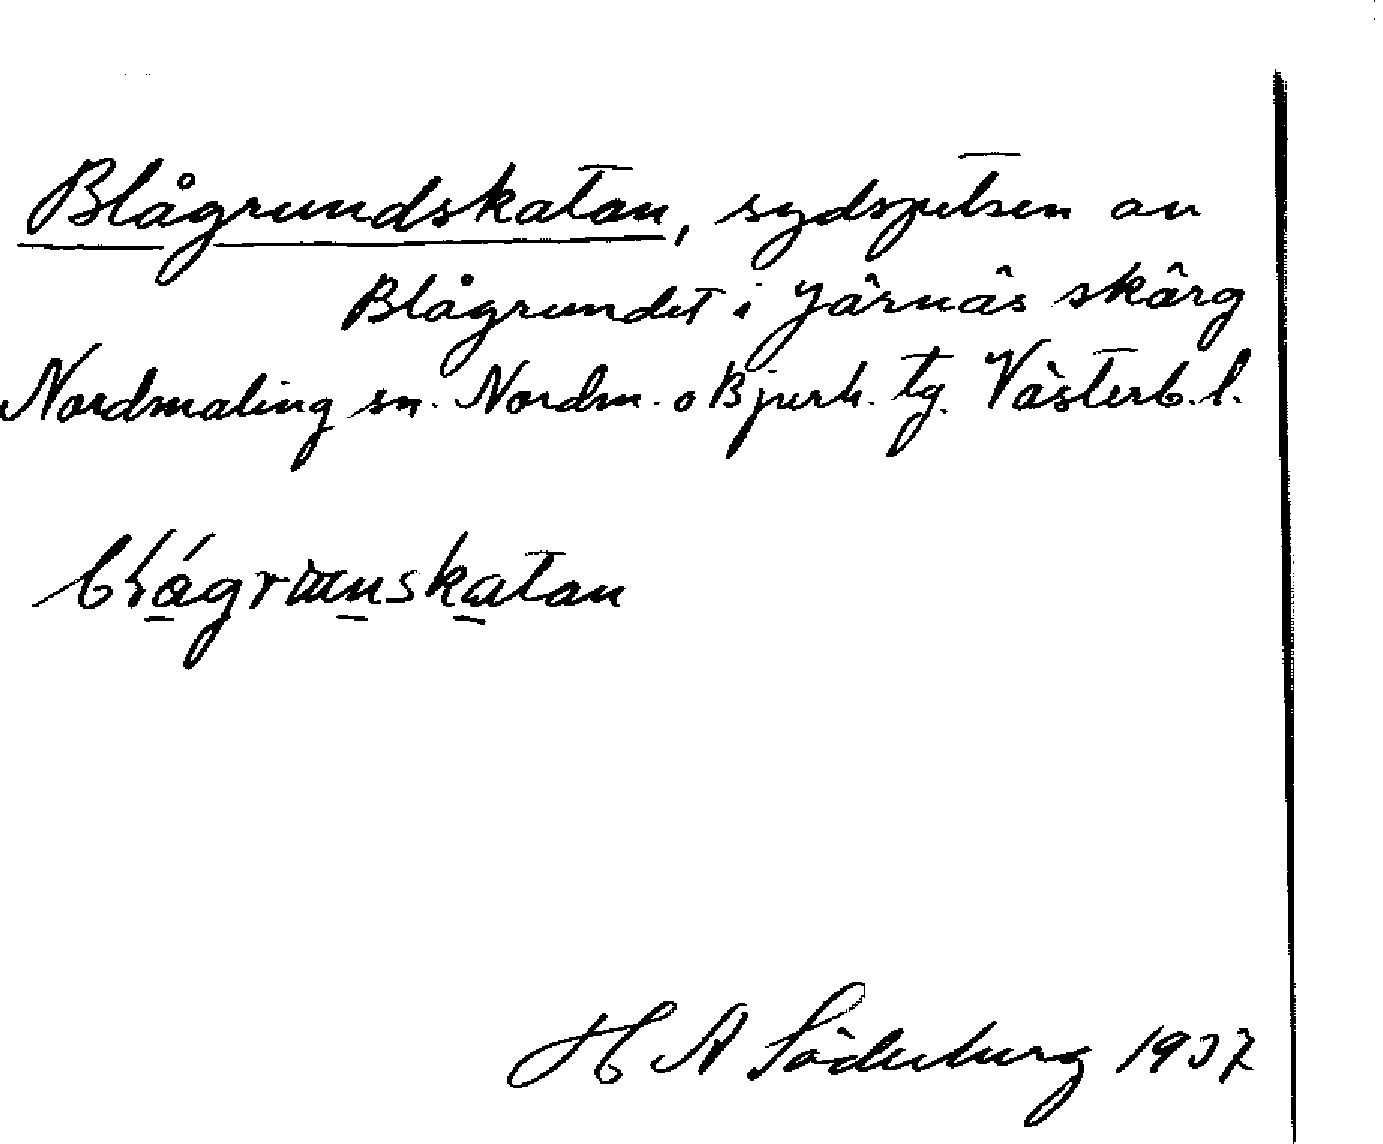 Blågrundskatan, sydspetsen av
Blågrundet i Järnäs skärg
Nordmaling sn. Nordm. o Bjurh. tg. Västerb. l.
H A Söderberg 1937